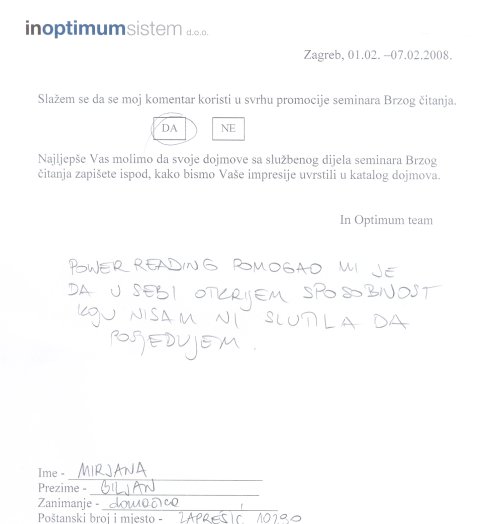 inoptimumsistem d.o.o.
Zagreb, 01.02. –07.02.2008.
Slažem se da se moj komentar koristi u svrhu promocije seminara Brzog čitanja.
DA NE
Najljepše Vas molimo da svoje dojmove sa službenog dijela seminara Brzog
čitanja zapišete ispod, kako bismo Vaše impresije uvrstili u katalog dojmova.
In Optimum team
POWER READING POMOGAO MI JE
DA U SEBI OTKRIJEM SPOSOBNOST
KOJU NISAM NI SLUTILA DA
POSJEDUJEM.
Ime - MIRJANA
Prezime - BILJAN
Zanimanje - domaćica
Poštanski broj i mjesto - ZAPREŠIĆ 10290